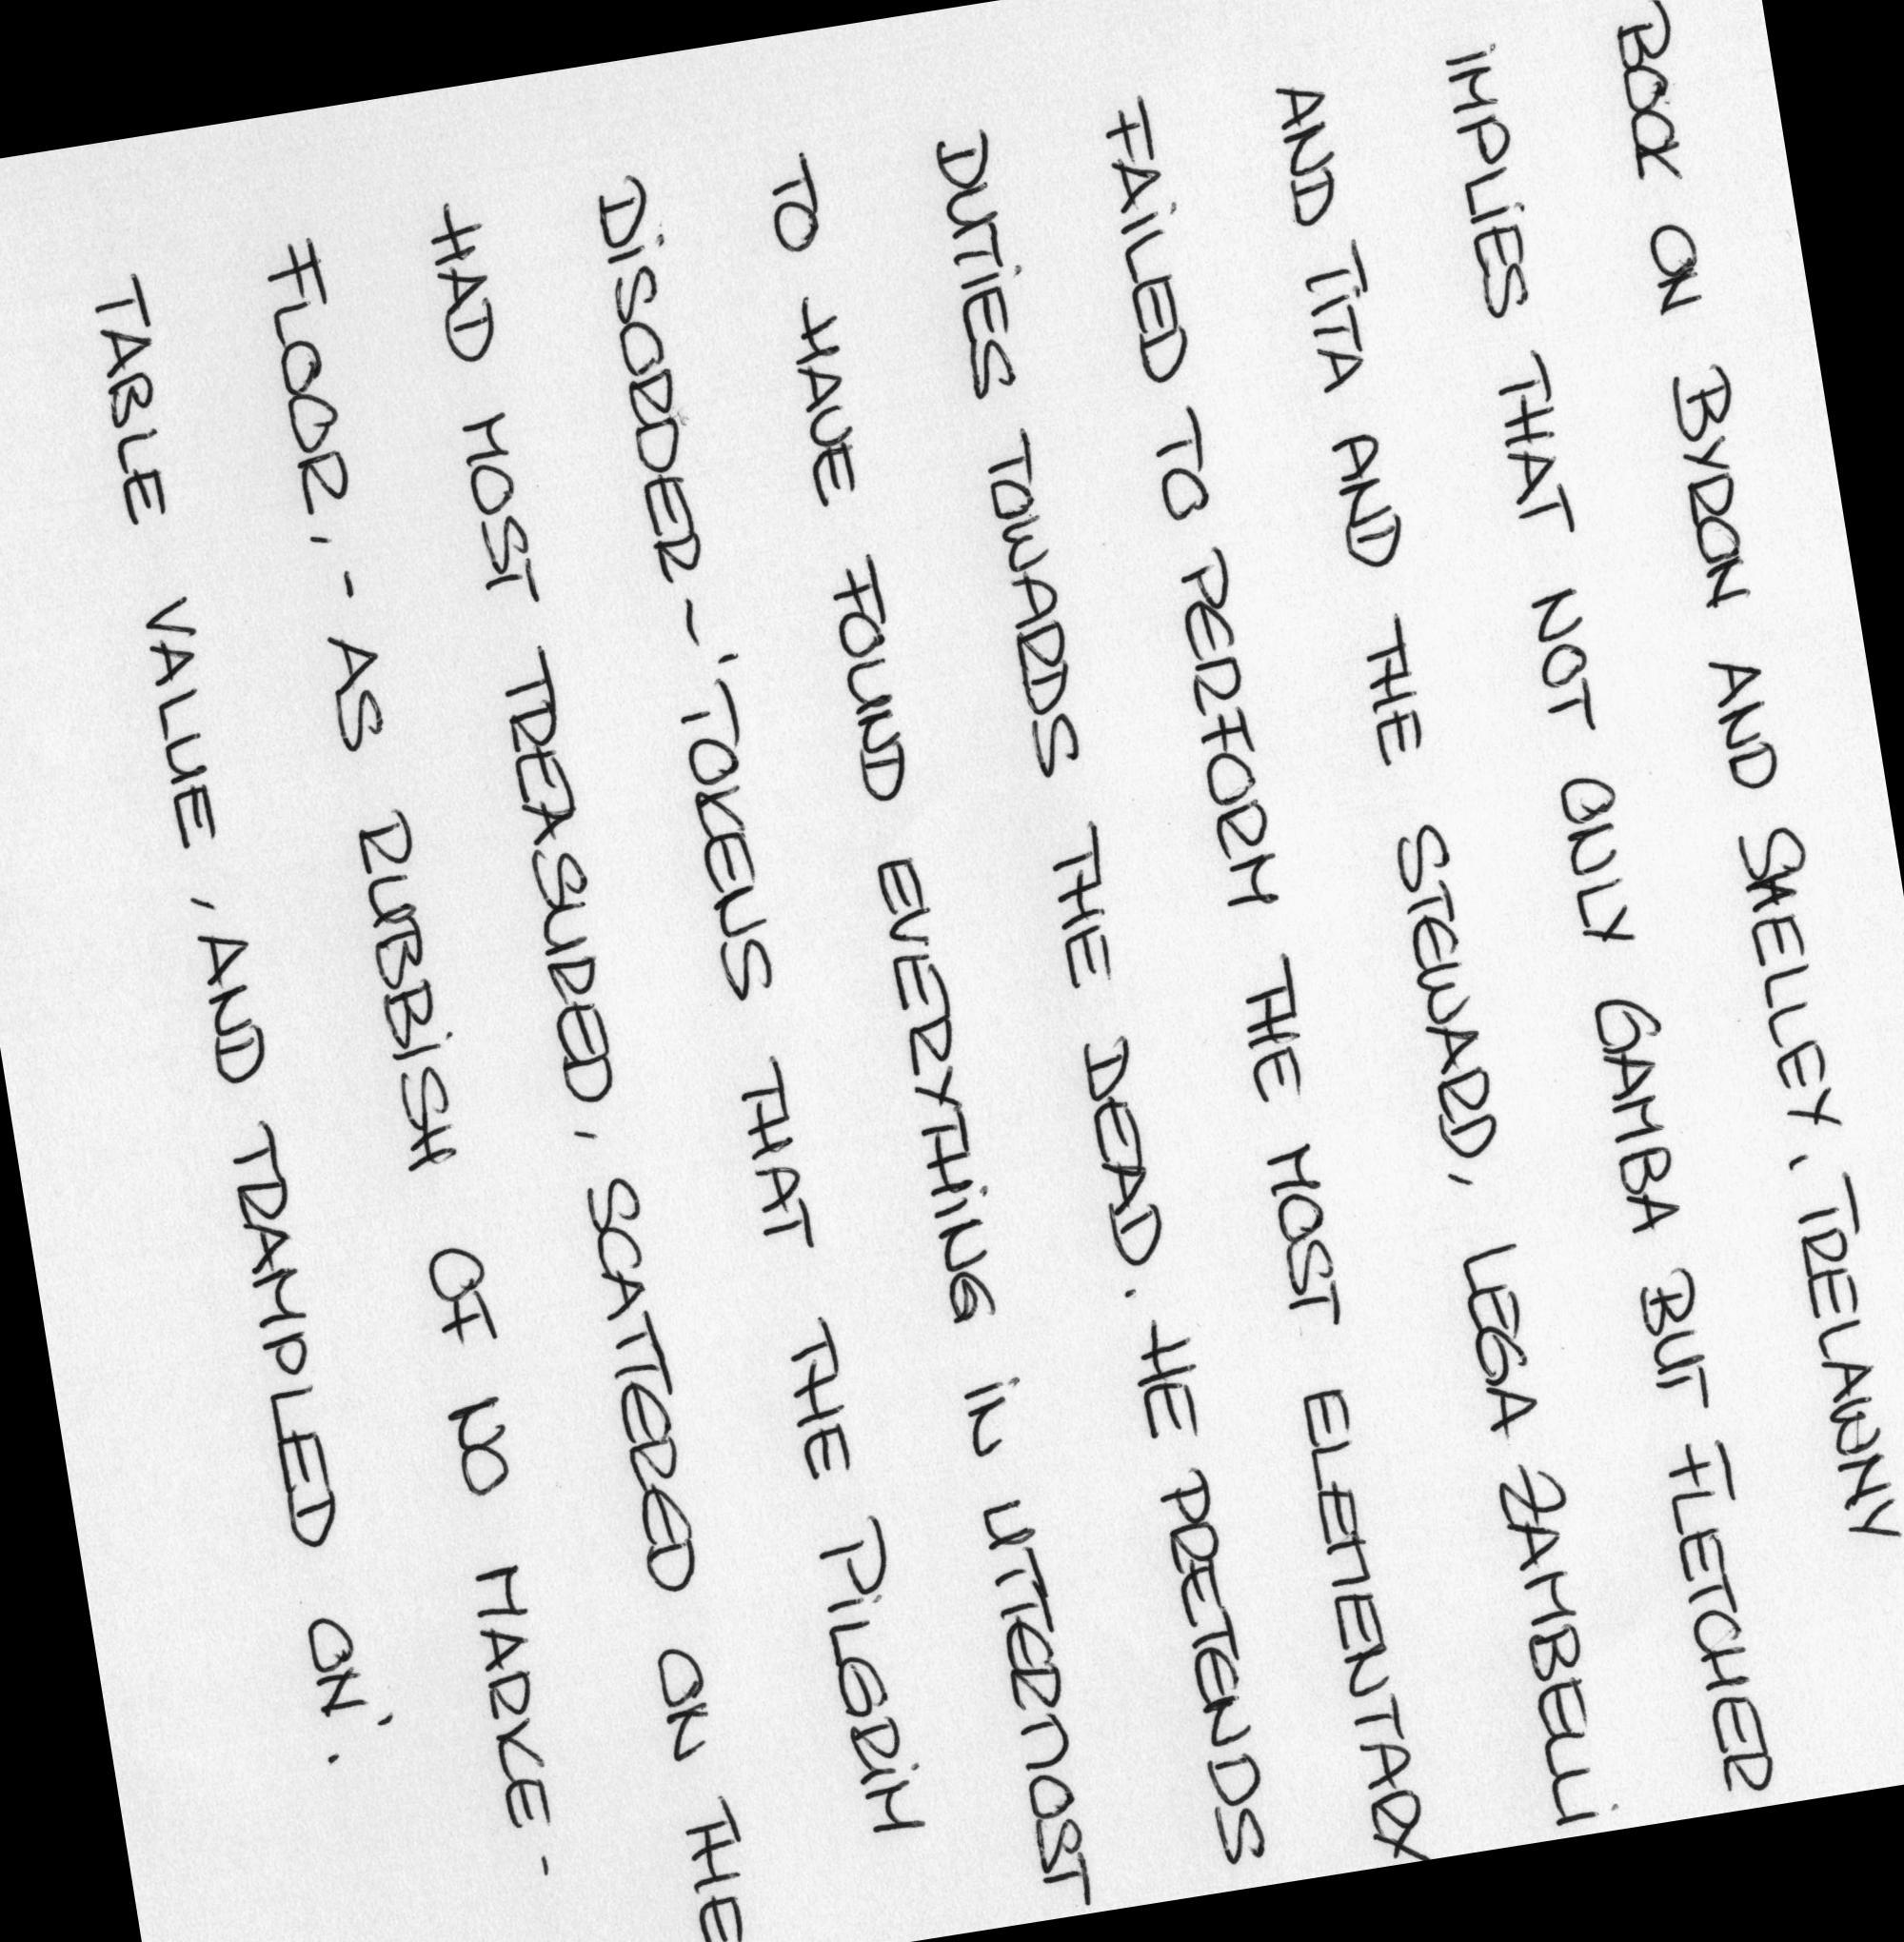 BOOK ON BYRON AND SHELLEY, TRELAWNY
IMPLIES THAT NOT ONLY GAMBA BUT FLETCHER
AND TITA AND THE STEWARD, LEGA ZAMBELLI
FAILED TO PERFORM THE MOST ELEMENTARY
DUTIES TOWARDS THE DEAD. HE PRETENDS
TO HAVE FOUND EVERYTHING IN UTTERMOST
DISORDER - 'TOKENS THAT THE PILGRIM
HAD MOST TREASURED, SCATTERED ON THE
FLOOR, - AS RUBBISH OF NO MARKE-
TABLE VALUE, AND TRAMPLED ON'.